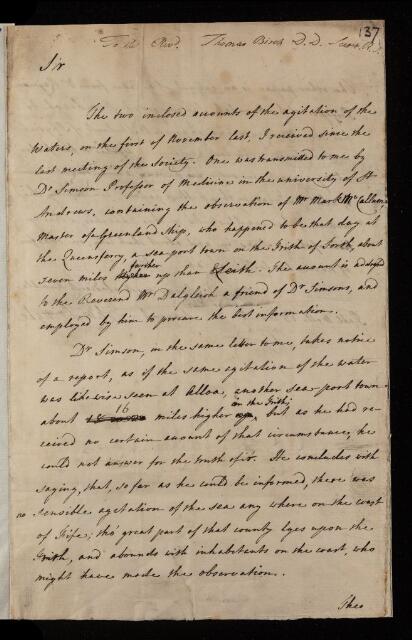 137
To the Revd. Thomas Birch D.D. Secr. R.S.
Sir
The two inclosed accounts of the agitation of the
Waters, on the first of November last, I received since the
last meeting of the Society. One was transmitted to me by
Dr Simson Professor of Medicine in the university of St
Andrews, containing the observation of Mr Mark McCallum,
Master of a Greenland Ship, who happened to be that day at
the Queensferry, a sea port town on the Frith of Forth, about
further
seven miles up than Leith. The account is addressed
to the Reverend Mr Dalgleish a friend of Dr Simsons, and
employed by him to procure the best information.
Dr. Simson, in the same letter to me, takes notice
of a report, as of the same agitation of the water
was likewise seen at Alloa, another sea-port town
16 in the Frith;
about miles higher but as he had re-
ceived no certain account of that circumstance, he
could not answer for the truth of it. He concludes with
saying, that, so far as he could be informed, there was
no sensible agitation of the sea any where on the coast
of Fife; tho' great part of that county lyes upon the
Frith, and abounds with inhabitants on the coast, who
might have made the observation.
Thes